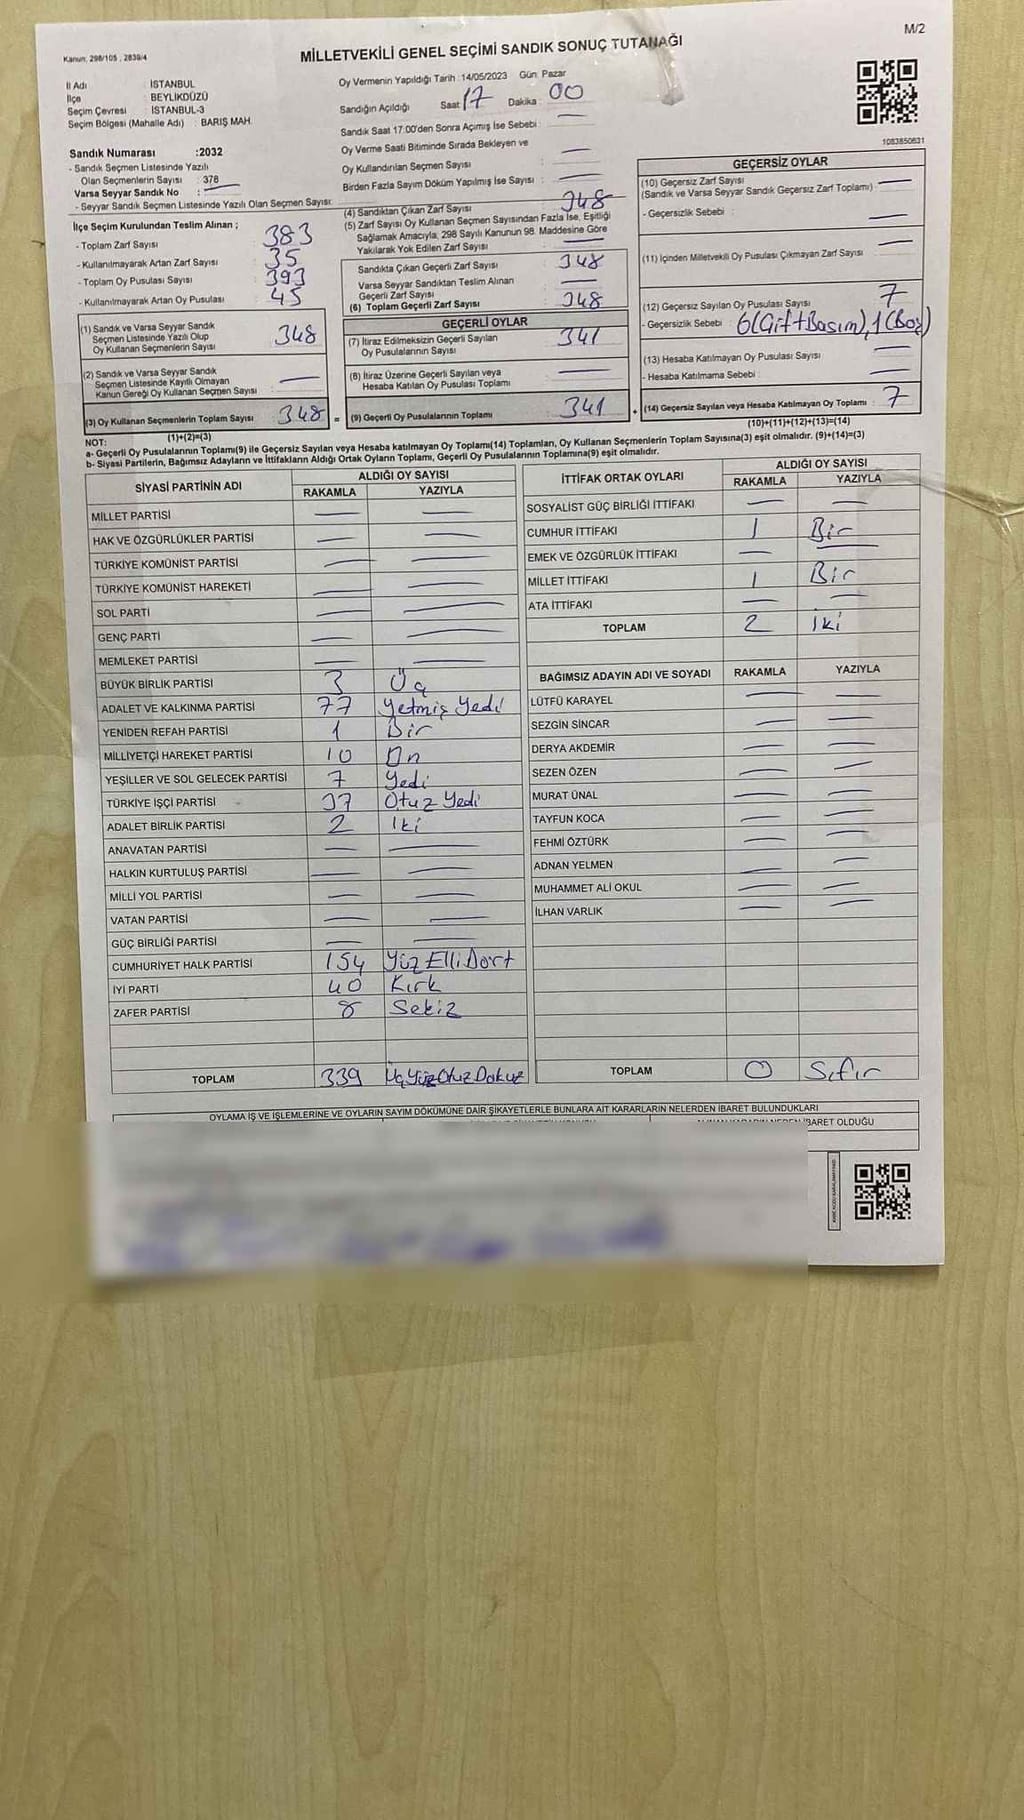 M/2
Kanun: 298/105 , 2839/4
MİLLETVEKİLİ GENEL SEÇİMİ SANDIK SONUÇ TUTANAĞI
İl Adı : İSTANBUL
İlçe : BEYLİKDÜZÜ
Seçim Çevresi : İSTANBUL-3
Seçim Bölgesi (Mahalle Adı) : BARIŞ MAH.
Sandık Numarası :2032
- Sandık Seçmen Listesinde Yazılı
Olan Seçmenlerin Sayısı : 378
Varsa Seyyar Sandık No : —
- Seyyar Sandık Seçmen Listesinde Yazılı Olan Seçmen Sayısı:
Oy Vermenin Yapıldığı Tarih :14/05/2023 Gün: Pazar
Sandığın Açıldığı Saat 17 Dakika : 00
Sandık Saat 17:00'den Sonra Açımış İse Sebebi : —
Oy Verme Saati Bitiminde Sırada Bekleyen ve
Oy Kullandırılan Seçmen Sayısı : —
Birden Fazla Sayım Döküm Yapılmış İse Sayısı : —
1083850631
İlçe Seçim Kurulundan Teslim Alınan ;
- Toplam Zarf Sayısı : 383
- Kullanılmayarak Artan Zarf Sayısı : 35
- Toplam Oy Pusulası Sayısı : 393
- Kullanılmayarak Artan Oy Pusulası : 45
(1) Sandık ve Varsa Seyyar Sandık
Seçmen Listesinde Yazılı Olup
Oy Kullanan Seçmenlerin Sayısı : 348
(2) Sandık ve Varsa Seyyar Sandık
Seçmen Listesinde Kayıtlı Olmayan
Kanun Gereği Oy Kullanan Seçmen Sayısı : —
(3) Oy Kullanan Seçmenlerin Toplam Sayısı : 348 =
(1)+(2)=(3)
(4) Sandıktan Çıkan Zarf Sayısı : 348
(5) Zarf Sayısı Oy Kullanan Seçmen Sayısından Fazla İse, Eşitliği
Sağlamak Amacıyla, 298 Sayılı Kanunun 98. Maddesine Göre
Yakılarak Yok Edilen Zarf Sayısı : —
Sandıkta Çıkan Geçerli Zarf Sayısı : 348
Varsa Seyyar Sandıktan Teslim Alınan
Geçerli Zarf Sayısı : —
(6) Toplam Geçerli Zarf Sayısı : 348
GEÇERLİ OYLAR
(7) İtiraz Edilmeksizin Geçerli Sayılan
Oy Pusulalarının Sayısı : 341
(8) İtiraz Üzerine Geçerli Sayılan veya
Hesaba Katılan Oy Pusulası Toplamı : —
(9) Geçerli Oy Pusulalarının Toplamı : 341 +
GEÇERSİZ OYLAR
(10) Geçersiz Zarf Sayısı : —
(Sandık ve Varsa Seyyar Sandık Geçersiz Zarf Toplamı)
- Geçersizlik Sebebi : —
(11) İçinden Milletvekili Oy Pusulası Çıkmayan Zarf Sayısı : —
(12) Geçersiz Sayılan Oy Pusulası Sayısı : 7
- Geçersizlik Sebebi : 6(Çift Basım), 1(Boş)
(13) Hesaba Katılmayan Oy Pusulası Sayısı : —
- Hesaba Katılmama Sebebi : —
(14) Geçersiz Sayılan veya Hesaba Katılmayan Oy Toplamı : 7
(10)+(11)+(12)+(13)=(14)
NOT:
a- Geçerli Oy Pusulalarının Toplamı(9) ile Geçersiz Sayılan veya Hesaba katılmayan Oy Toplamı(14) Toplamları, Oy Kullanan Seçmenlerin Toplam Sayısına(3) eşit olmalıdır. (9)+(14)=(3)
b- Siyasi Partilerin, Bağımsız Adayların ve İttifakların Aldığı Ortak Oyların Toplamı, Geçerli Oy Pusulalarının Toplamına(9) eşit olmalıdır.
SİYASİ PARTİNİN ADI ALDIĞI OY SAYISI
RAKAMLA YAZIYLA
MİLLET PARTİSİ — —
HAK VE ÖZGÜRLÜKLER PARTİSİ — —
TÜRKİYE KOMÜNİST PARTİSİ — —
TÜRKİYE KOMÜNİST HAREKETİ — —
SOL PARTİ — —
GENÇ PARTİ — —
MEMLEKET PARTİSİ — —
BÜYÜK BİRLİK PARTİSİ 3 Üç
ADALET VE KALKINMA PARTİSİ 77 Yetmiş Yedi
YENİDEN REFAH PARTİSİ 1 Bir
MİLLİYETÇİ HAREKET PARTİSİ 10 On
YEŞİLLER VE SOL GELECEK PARTİSİ 7 Yedi
TÜRKİYE İŞÇİ PARTİSİ 37 Otuz Yedi
ADALET BİRLİK PARTİSİ 2 İki
ANAVATAN PARTİSİ — —
HALKIN KURTULUŞ PARTİSİ — —
MİLLİ YOL PARTİSİ — —
VATAN PARTİSİ — —
GÜÇ BİRLİĞİ PARTİSİ — —
CUMHURİYET HALK PARTİSİ 154 Yüz Elli Dört
İYİ PARTİ 40 Kırk
ZAFER PARTİSİ 8 Sekiz
TOPLAM 339 Üç Yüz Otuz Dokuz
İTTİFAK ORTAK OYLARI ALDIĞI OY SAYISI
RAKAMLA YAZIYLA
SOSYALİST GÜÇ BİRLİĞİ İTTİFAKI — —
CUMHUR İTTİFAKI 1 Bir
EMEK VE ÖZGÜRLÜK İTTİFAKI — —
MİLLET İTTİFAKI 1 Bir
ATA İTTİFAKI — —
TOPLAM 2 İki
BAĞIMSIZ ADAYIN ADI VE SOYADI RAKAMLA YAZIYLA
LÜTFÜ KARAYEL — —
SEZGİN SİNCAR — —
DERYA AKDEMİR — —
SEZEN ÖZEN — —
MURAT ÜNAL — —
TAYFUN KOCA — —
FEHMİ ÖZTÜRK — —
ADNAN YELMEN — —
MUHAMMET ALİ OKUL — —
İLHAN VARLIK — —
TOPLAM 0 Sıfır
OYLAMA İŞ VE İŞLEMLERİNE VE OYLARIN SAYIM DÖKÜMÜNE DAİR ŞİKAYETLERLE BUNLARA AİT KARARLARIN NELERDEN İBARET BULUNDUKLARI
İBARET OLDUĞU